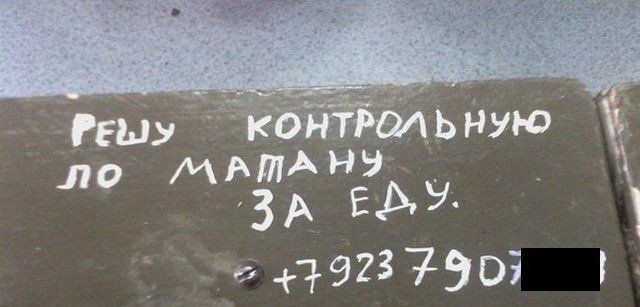 РЕШУ КОНТРОЛЬНУЮ
ПО МАТАНУ
ЗА ЕДУ.
+7923 7907